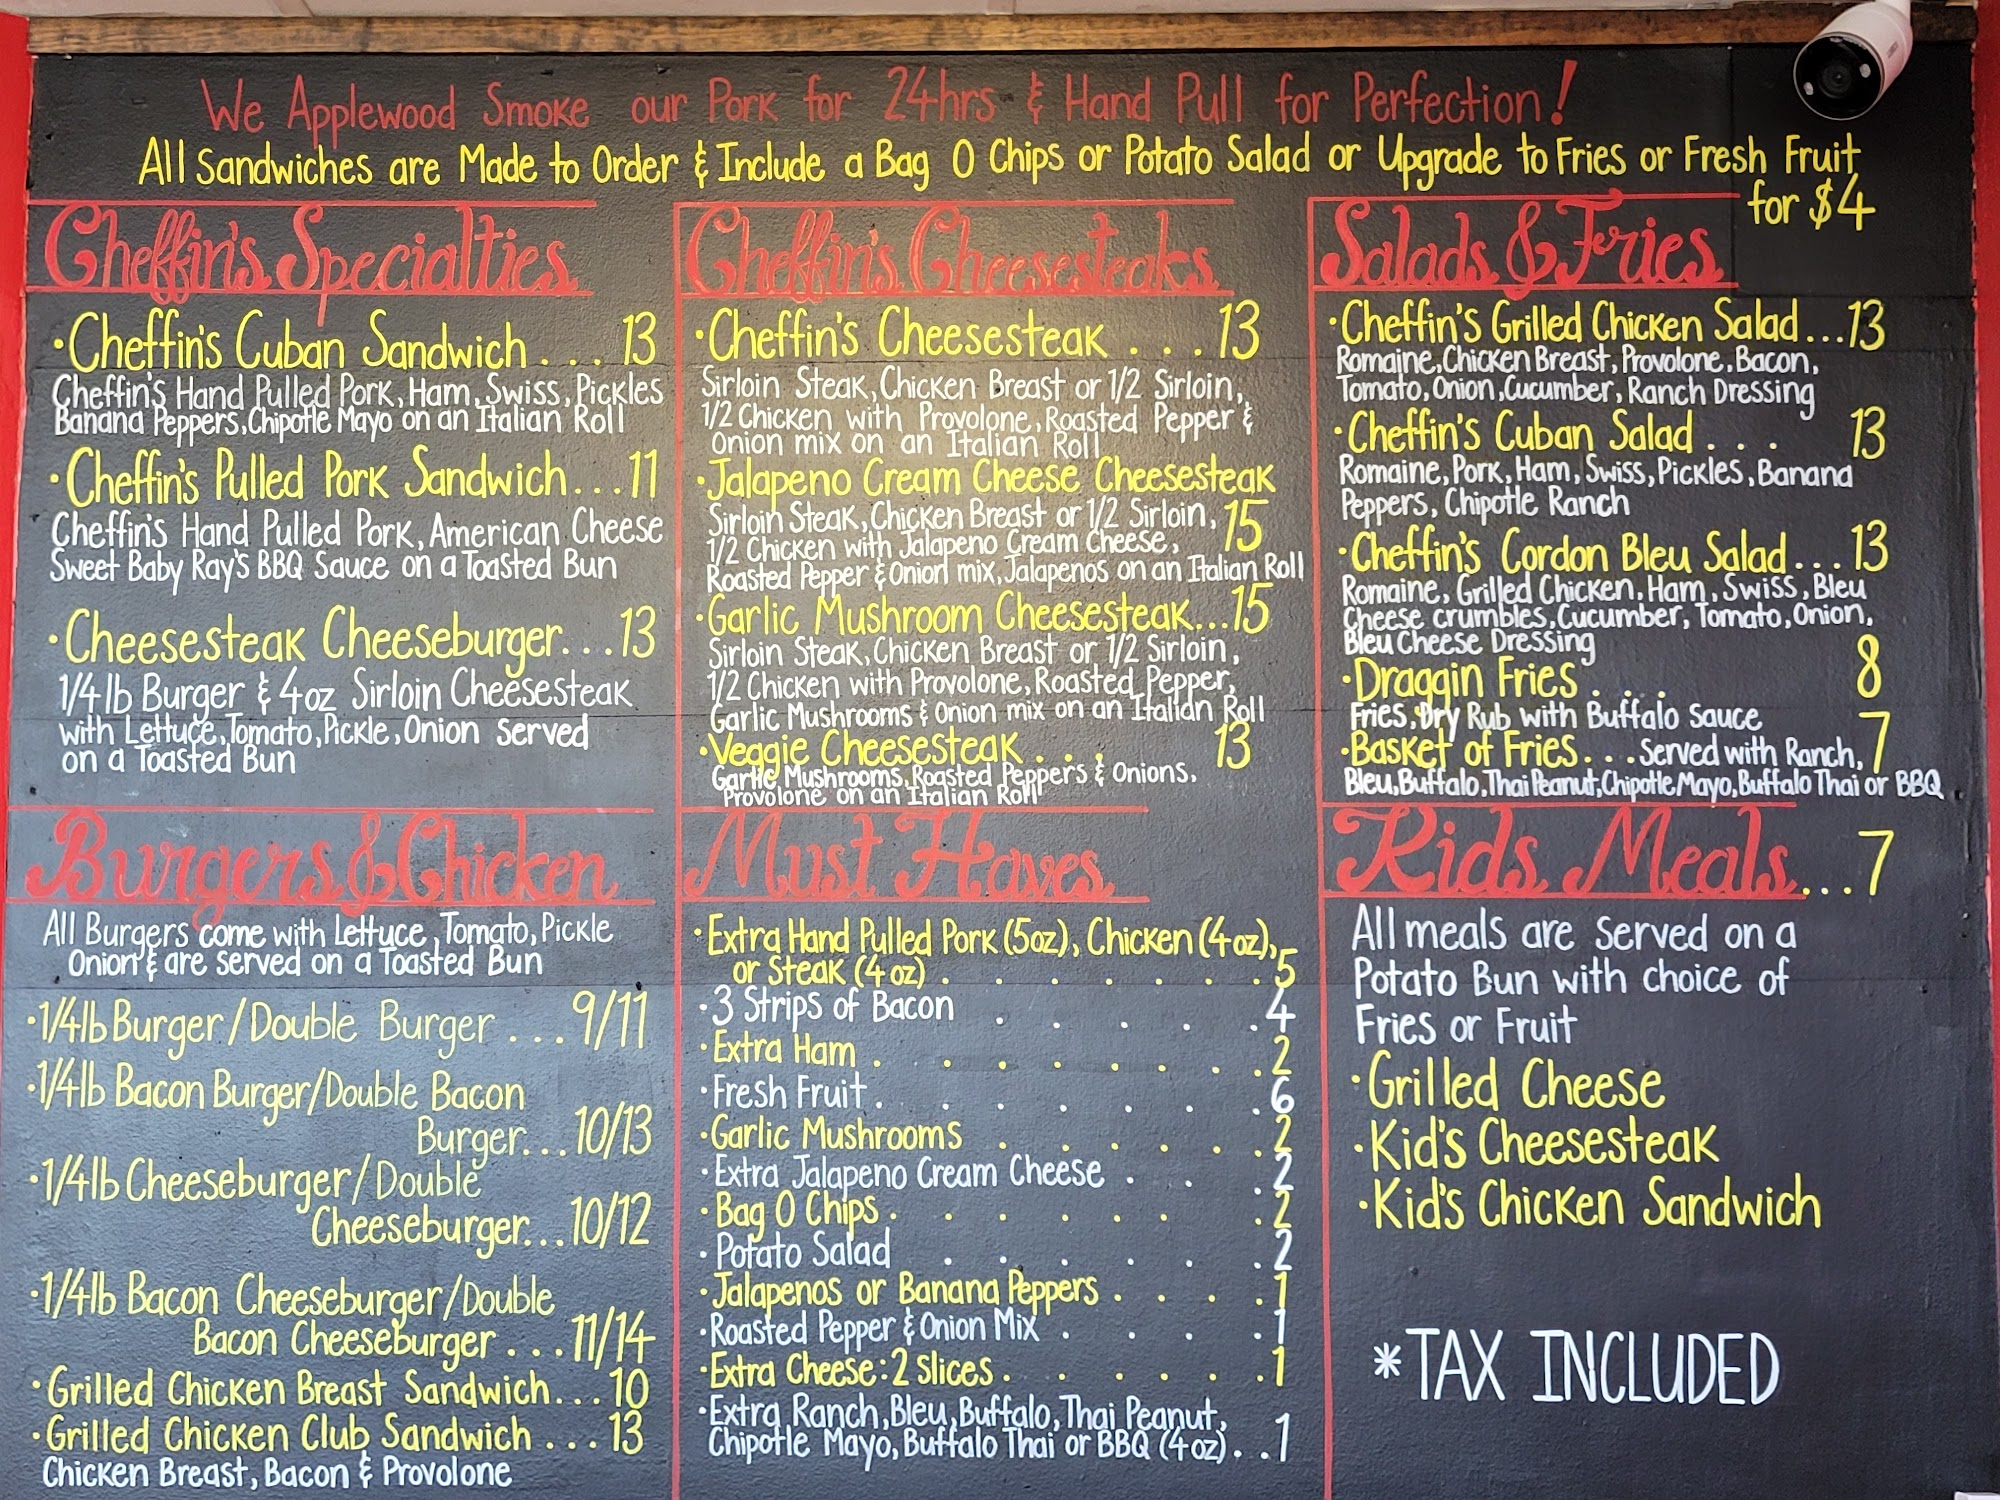 We Applewood Smoke our Pork for 24hrs & Hand Pull for Perfection!
All Sandwiches are Made to Order & Include a Bag O Chips or Potato Salad or Upgrade to Fries or Fresh Fruit
for $4
Cheffin's Specialties
·Cheffin's Cuban Sandwich . . . 13
Cheffin's Hand Pulled Pork, Ham, Swiss, Pickles
Banana Peppers, Chipotle Mayo on an Italian Roll
·Cheffin's Pulled Pork Sandwich...11
Cheffin's Hand Pulled Pork, American Cheese
Sweet Baby Ray's BBQ Sauce on a Toasted Bun
·Cheesesteak Cheeseburger...13
1/4 lb Burger & 4oz Sirloin Cheesesteak
with Lettuce, Tomato, Pickle, Onion served
on a Toasted Bun
Burgers & Chicken
All Burgers come with Lettuce, Tomato, Pickle
Onion & are served on a Toasted Bun
·1/4lb Burger/Double Burger ...9/11
·1/4lb Bacon Burger/Double Bacon
Burger...10/13
·1/4lb Cheeseburger/Double
Cheeseburger...10/12
·1/4lb Bacon Cheeseburger/Double
Bacon Cheeseburger ...11/14
·Grilled Chicken Breast Sandwich...10
·Grilled Chicken Club Sandwich ...13
Chicken Breast, Bacon & Provolone
Cheffin's Cheesesteaks
·Cheffin's Cheesesteak . . . 13
Sirloin Steak, Chicken Breast or 1/2 Sirloin,
1/2 Chicken with Provolone, Roasted Pepper &
Onion mix on an Italian Roll
·Jalapeno Cream Cheese Cheesesteak
Sirloin Steak, Chicken Breast or 1/2 Sirloin, 15
1/2 Chicken with Jalapeno Cream Cheese,
Roasted Pepper & Onion mix, Jalapenos on an Italian Roll
·Garlic Mushroom Cheesesteak...15
Sirloin Steak, Chicken Breast or 1/2 Sirloin,
1/2 Chicken with Provolone, Roasted Pepper,
Garlic Mushrooms & Onion mix on an Italian Roll
·Veggie Cheesesteak . . . 13
Garlic Mushrooms, Roasted Peppers & Onions,
Provolone on an Italian Roll
Must Haves
·Extra Hand Pulled Pork (5oz), Chicken (4oz),
or Steak (4 oz) . . . . . . . 5
·3 Strips of Bacon . . . . . 4
·Extra Ham . . . . . . . 2
·Fresh Fruit . . . . . . . 6
·Garlic Mushrooms . . . . . 2
·Extra Jalapeno Cream Cheese . . . 2
·Bag O Chips . . . . . . . 2
·Potato Salad . . . . . . 2
·Jalapenos or Banana Peppers . . . . 1
·Roasted Pepper & Onion Mix . . . . 1
·Extra Cheese: 2 Slices . . . . . . 1
·Extra Ranch, Bleu, Buffalo, Thai Peanut,
Chipotle Mayo, Buffalo Thai or BBQ (4oz) . . 1
Salads & Fries
·Cheffin's Grilled Chicken Salad...13
Romaine, Chicken Breast, Provolone, Bacon,
Tomato, Onion, Cucumber, Ranch Dressing
·Cheffin's Cuban Salad . . . 13
Romaine, Pork, Ham, Swiss, Pickles, Banana
Peppers, Chipotle Ranch
·Cheffin's Cordon Bleu Salad...13
Romaine, Grilled Chicken, Ham, Swiss, Bleu
Cheese crumbles, Cucumber, Tomato, Onion,
Bleu Cheese Dressing
·Draggin Fries . . . . 8
Fries, Dry Rub with Buffalo Sauce
·Basket of Fries...Served with Ranch, 7
Bleu, Buffalo, Thai Peanut, Chipotle Mayo, Buffalo Thai or BBQ
Kids Meals...7
All meals are served on a
Potato Bun with choice of
Fries or Fruit
·Grilled Cheese
·Kid's Cheesesteak
·Kid's Chicken Sandwich
*TAX INCLUDED